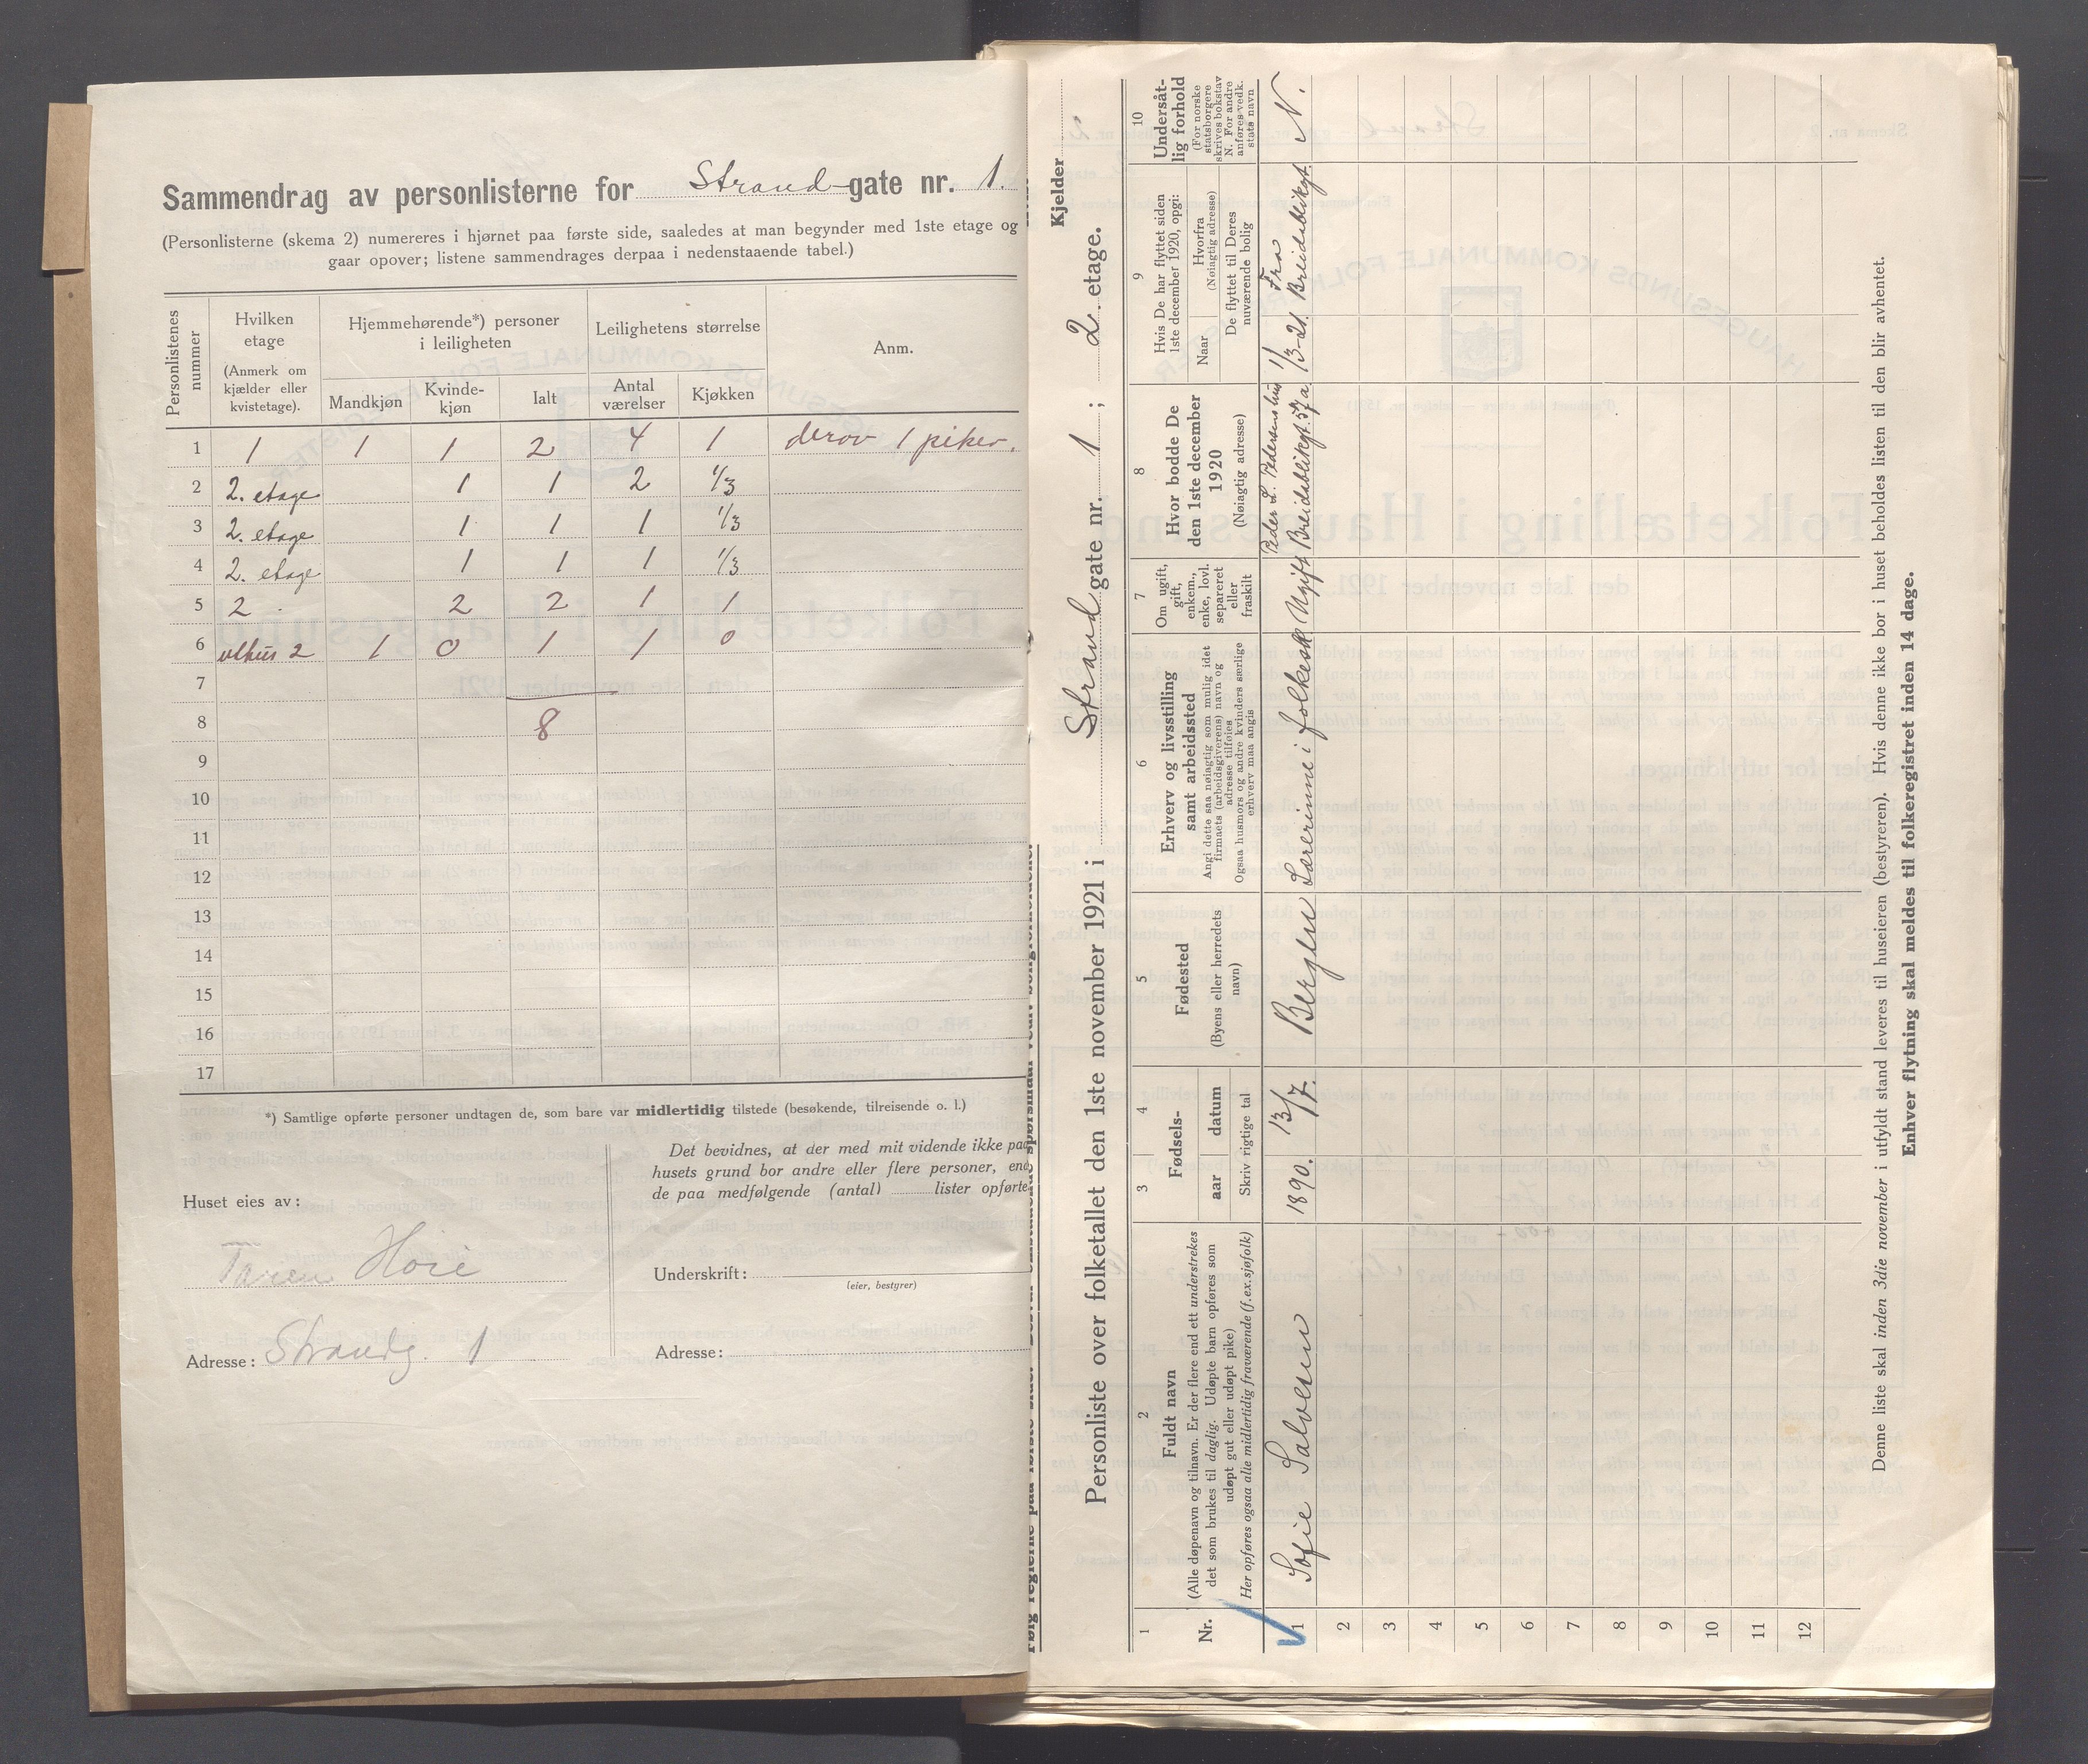 Sammendrag av personlisterne for Strand-gate nr. 1.
(Personlisterne (skema 2) numereres i hjørnet paa første side, saaledes at man begynder med 1ste etage og
gaar opover; listene sammendrages derpaa i nedenstaaende tabel.)
Personlistenes nummer
Hvilken etage
(Anmerk om kjælder eller kvistetage).
Hjemmehørende*) personer i leiligheten
Mandkjøn
Kvinde-kjøn
Ialt
Leilighetens størrelse
Antal værelser
Kjøkken
Anm.
1 1 1 1 2 4 1 derav 1 piker.
2 2. etage 1 1 2 1/3
3 2. etage 1 1 1 1/3
4 2. etage 1 1 1 1/3
5 2 - 2 2 1 1
6 uthus 2 1 0 1 1 0
7
8 8
9
10
11
12
13
14
15
16
17
*) Samtlige opførte personer undtagen de, som bare var midlertidig tilstede (besøkende, tilreisende o. l.)
Huset eies av:
Høie
Adresse: Strandg. 1
Det bevidnes, at der med mit vidende ikke paa
husets grund bor andre eller flere personer, end
de paa medfølgende (antal) lister opførte
Underskrift:
(eier, bestyrer)
Adresse:
Personliste over folketallet den 1ste november 1921 i Strand gate nr. 1 ; 2. etage.
Kjelder
1
Nr.
2
Fuldt navn
(Alle døpenavn og tilnavn. Er der flere end ett understrekes
det som brukes til daglig. Udøpte barn opføres som
udøpt gut eller udøpt pike)
Her opføres ogsaa alle midlertidig fraværende (f.ex.sjøfolk)
3 4
Fødsels-
aar datum
Skriv rigtige tal
5
Fødested
(Byens eller herredets
navn)
6
Erhverv og livsstilling
samt arbeidssted
Angi dette saa nøiagtig som mulig idet
firmaets (arbeidsgiverens) navn og
adresse tilføies
Ogsaa husmors og andre kvinders særlige
erhverv maa angis
7
Om ugift,
gift,
enkem.,
enke, lovl.
separeret
eller
fraskilt
8
Hvor bodde De
den 1ste december
1920
(Nøiagtig adresse)
9
Hvis De har flyttet siden
1ste december 1920, opgi:
Naar
Hvorfra
(Nøiagtig adresse)
De flyttet til Deres
nuværende bolig
10
Undersåt-
lig forhold
(For norske
statsborgere
skrives bokstav
N. For andre
anføres vedk.
stats navn
1 Sofie Salvesen 1890. 13/7. Bergen Lærerinne i folkesk Ugift Peder L. Pedersens hus Breidablikgt. 57a. 1/3-21. Fra Breidablikgt. N.
2
3
4
5
6
7
8
9
10
11
12
Denne liste skal inden 3die november i utfyldt stand leveres til huseieren (bestyreren). Hvis denne ikke bor i huset beholdes listen til den blir avhentet.
Enhver flytning skal meldes til folkeregistret inden 14 dage.